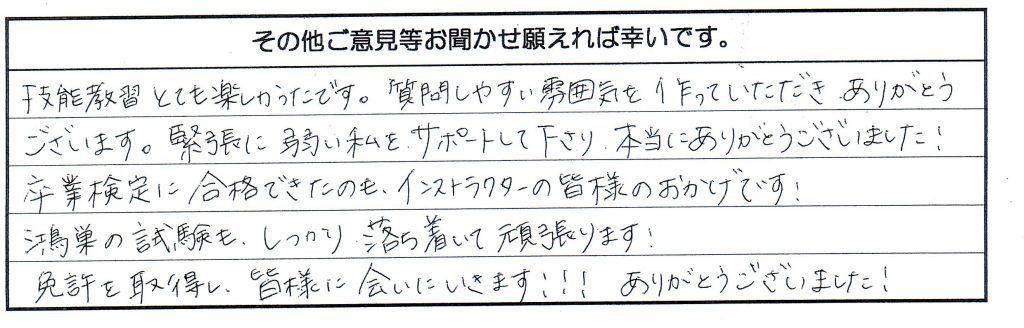 その他ご意見等お聞かせ願えれば幸いです。
技能教習とても楽しかったです。質問しやすい雰囲気を作っていただきありがとう
ございます。緊張に弱い私を、サポートして下さり、本当にありがとうございました!
卒業検定に合格できたのも、インストラクターの皆様のおかげです!
鴻巣の試験も、しっかり落ち着いて頑張ります!
免許を取得し、皆様に会いにいきます!!! ありがとうございました!